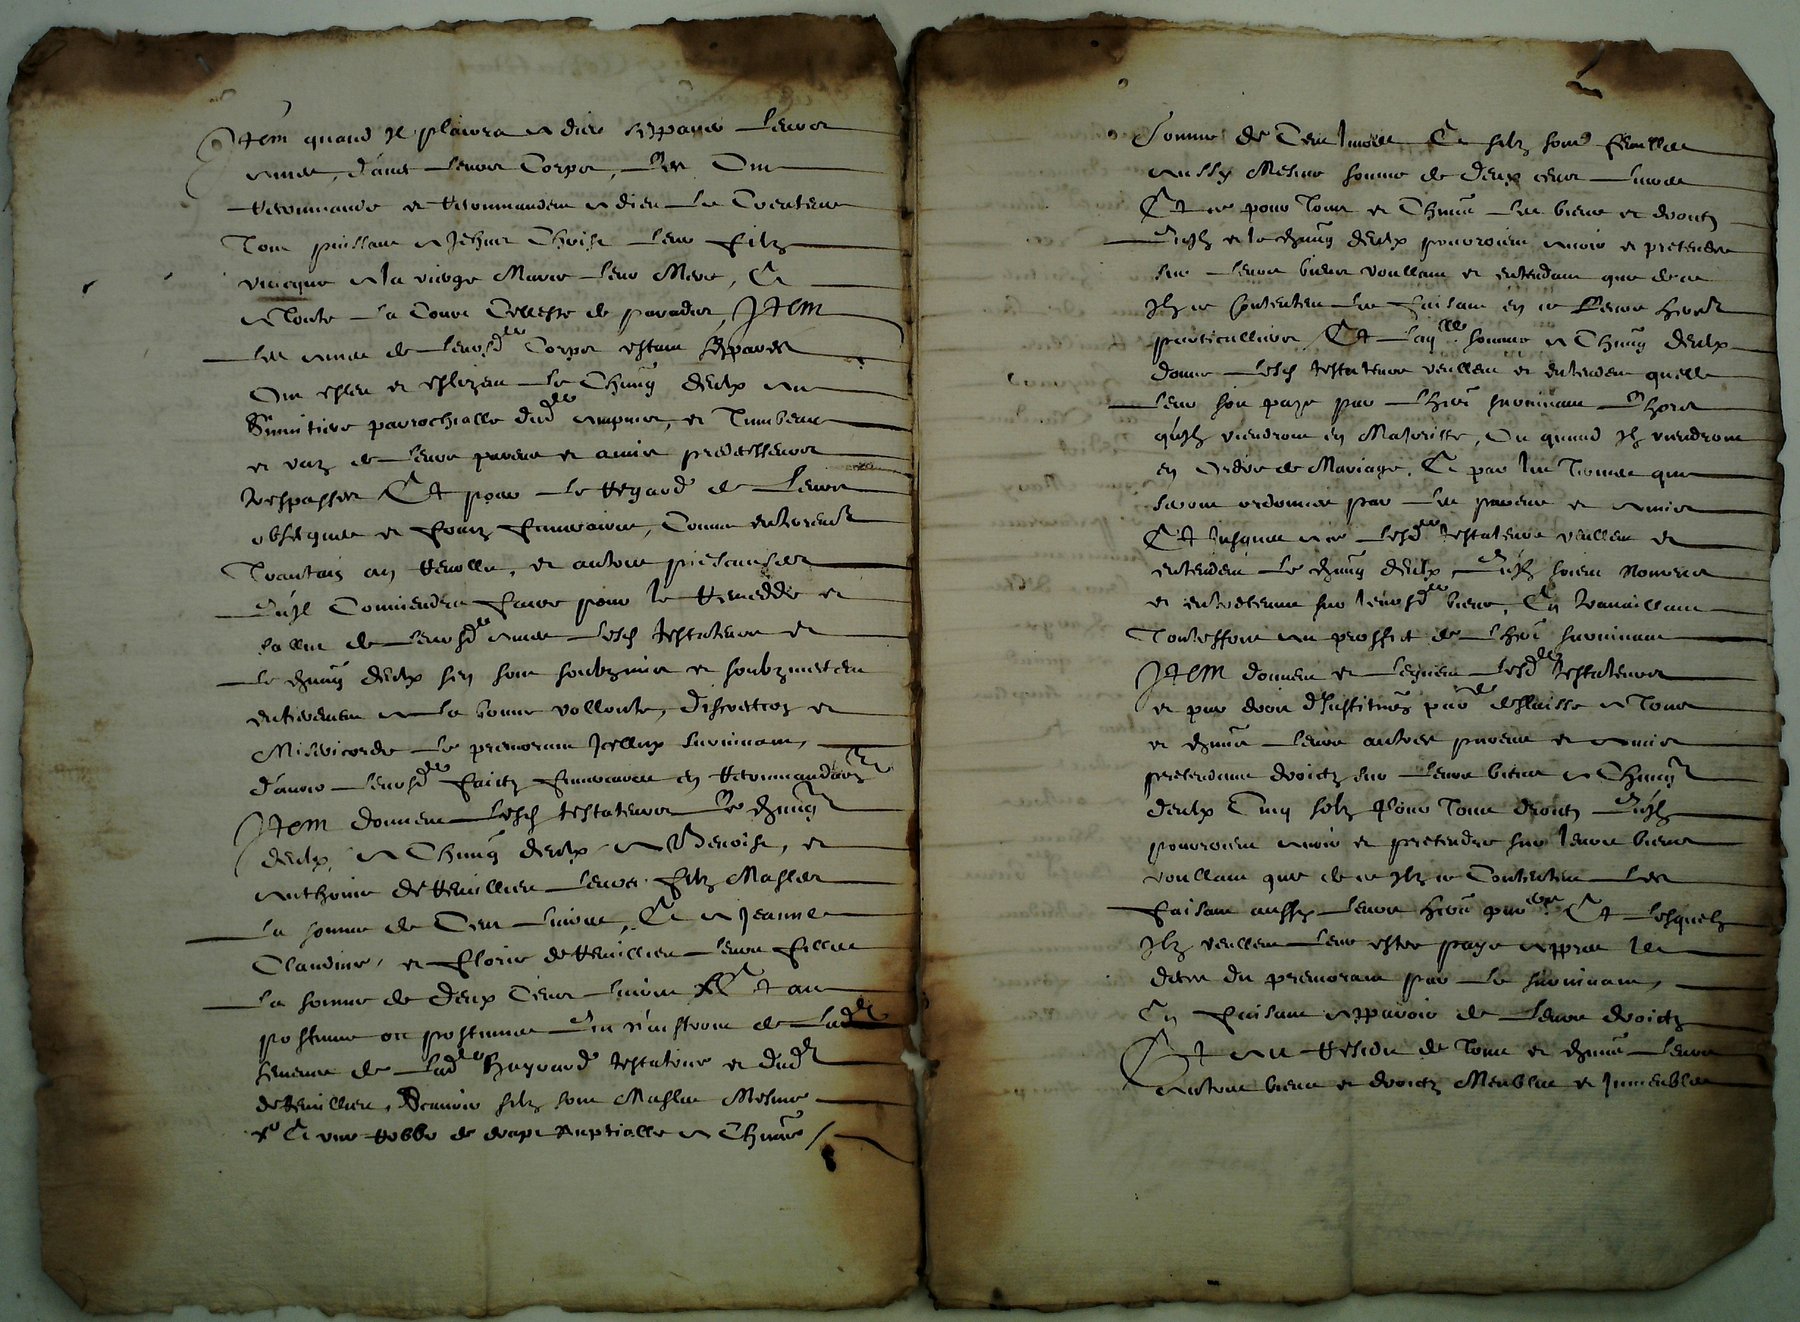 Item quand Il plaira a dieu sepparer Leurs
ames d'auec Leurs Corps, Les Ont
Recommande et Recommandent a dieu Le Createur
Tout puissant a Jehus Christ Leur filz
vnicque a la vierge Marie Leur Mere, Et
a Toute La Court Celleste de paradis, Item
Les ames de leursd Corps estant sepparés
Ont esleu et eslizent Le Chung deulx au
Simitiere parrochialle dud et Tumbeaux
et vaz de Leurs parens et amis predesseurs
trespasses Et pour Le Regard de Leurs
obseques et fraiz funeraires, Comme
et autres
Quil Conviendra faire pour le Remedde et
sallut de Leursd ames Lesd testateurs et
Le chung deulx sen sont soubzmis et soubzmettent
entierement a La bonne vollonte, discretion et
Misericorde Le premorant Icelluy survivant,
d'auoir Leursd faictz funeraires en Recommandaon
Item donnent Lesd testateurs Le chung
deulx a Chung deulx a Benoist, et
Anthoine de Revillier Leurs filz Masles
La somme de Cent Livres, Et a Jeanne
Claudine, et florie de Revillier Leurs filles
La somme de deux Cens Livres Et au
postume ou postumes Qui naistront de Lad
femme de Lad testatrice et dud
deRevillier, Scauoir silz sont Masles Mesme
Et vne Robbe de drapt Nuptialle a Chune
Somme de Cent livres Et silz sont femelles
aussy Mesme somme de deux cens Livres
Et ce pour Tous et Chuns Les biens et droictz
Quilz et le chung deulx pourroient auoir et pretendre
sur Leurs biens voullant et entendant que de ce
Ilz se Contentent Les faisant en ce Leurs heors
particulliers Et Laqlle somme a Chung deulx
donne Lesd testateurs veullent et entendent quelle
Leur soit paye par Lheor survivant Lhors
quilz viendront en Majorite, Ou quand Ilz viendront
en ordre de Mariage, Et par les Termes que
seront ordonnes par Les parens et amis
Et Jusques a ce Lesd testateurs veullent et
entendent Le chung deulx Quilz soient Nourris
et entretenus sur leursd biens, En travaillant
Touteffois au proffit de Lheor survivant
Item donnent et Leguent Lesd testateurs
et par droit d'Institution par delaisse a Tous
et chuns Leurs autres parens et amis
pretendans droictz sur Leurs biens a Chung
deulx Cinq solz Pour Tous droictz Quilz
pourroient auoir et pretendre sur leurs biens
voullant que de ce Ilz se Contentent Les
faisant aussy Leurs heors parers Et Lesquelz
Ilz veullent Leur estre paye appres le
deces du premorant par Le survivant,
En faisant apparoir de Leurs droictz
Et au Residu de Tous et chuns Leurs
Autres biens et droictz Meubles et Immeubles